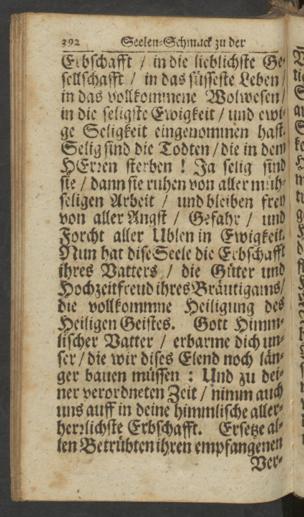 392 Seelen-Schmack zu der
Erbschafft / in die lieblichste Ge-
sellschafft / in das süsseste Leben /
in das vollkommene Wolwesen /
in die seligste Ewigkeit / und ewi-
ge Seligkeit eingenommen hast.
Selig sind die Todten / die in dem
HErren sterben ! Ja selig sind
sie / dann sie ruhen von aller müh-
seligen Arbeit / und bleiben frey
von aller Angst / Gefahr / und
Forcht aller Ublen in Ewigkeit.
Nun hat dise Seele die Erbschafft
ihres Vatters / die Güter und
Hochzeitfreud ihres Bräutigams /
die vollkommne Heiligung des
Heiligen Geistes. Gott Himm-
lischer Vatter / erbarme dich un-
ser / die wir dises Elend noch län-
ger bauen müssen : Und zu dei-
ner verordneten Zeit / nimm auch
uns auff in deine himmlische aller-
herrlichste Erbschafft. Ersetze al-
len Betrübten ihren empfangenen
Ver-